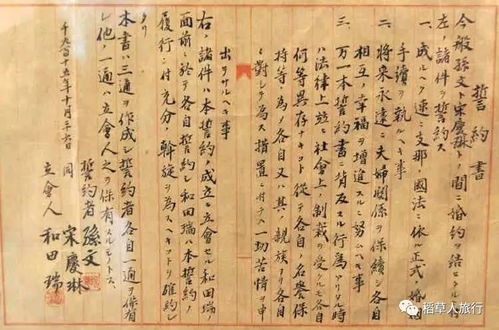 誓約書
今般孫文ト宋慶琳トノ間ニ婚約ヲ結ヒタルニ
左ノ諸件ヲ誓約ス
一、成ルヘク速ニ支那ノ國法ニ依ル正式婚姻
手續ヲ執ルヘキ事
二、將來永遠ニ夫婦關係ヲ保續シ各自
相互ノ幸福ヲ増進スルニ努ムヘキ事
三、万一本誓約書ニ背反スル行為アリタル時
ハ法律上竝ニ社會上ノ制裁ヲ受クルモ各自
何等異存ナキコト従テ各自ノ名譽保
持等ノ為メ各自又ハ其ノ親族ヨリ
ニ對シテ為ス措置ニ付テハ一切苦情ヲ申
出テサルヘキ事
右ノ諸件ハ本誓約ノ成立ニ立會セル和田瑞ノ
面前ニ於テ各自誓約シ和田瑞ハ本誓約ノ
履行ニ付充分ノ斡旋ヲ為スヘキコトヲ確約シ
タリ
本書ハ三通ヲ作成シ誓約者各自一通ヲ保有
シ他ノ一通ハ立會人之ヲ保有スルモノトス
誓約者 孫文
同 宋慶琳
立會人 和田瑞
千九百十五年十月二十六日
稻草人旅行